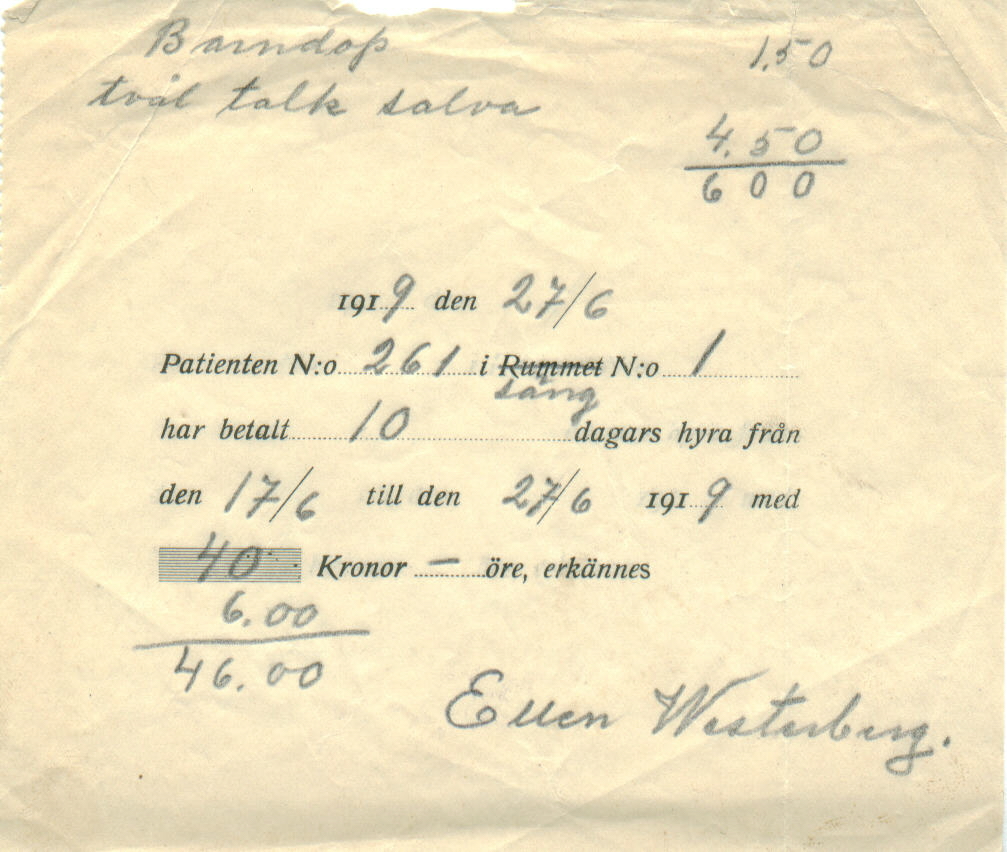 Barndop 1.50
tvål talk salva
4.50
6 0 0
1919 den 27/6
Patienten N:o 261 i Rummet N:o 1
säng
har betalt 10 dagars hyra från
den 17/6 till den 27/6 1919 med
40 Kronor — öre, erkännes
6.00
46.00
Ellen Westerberg.